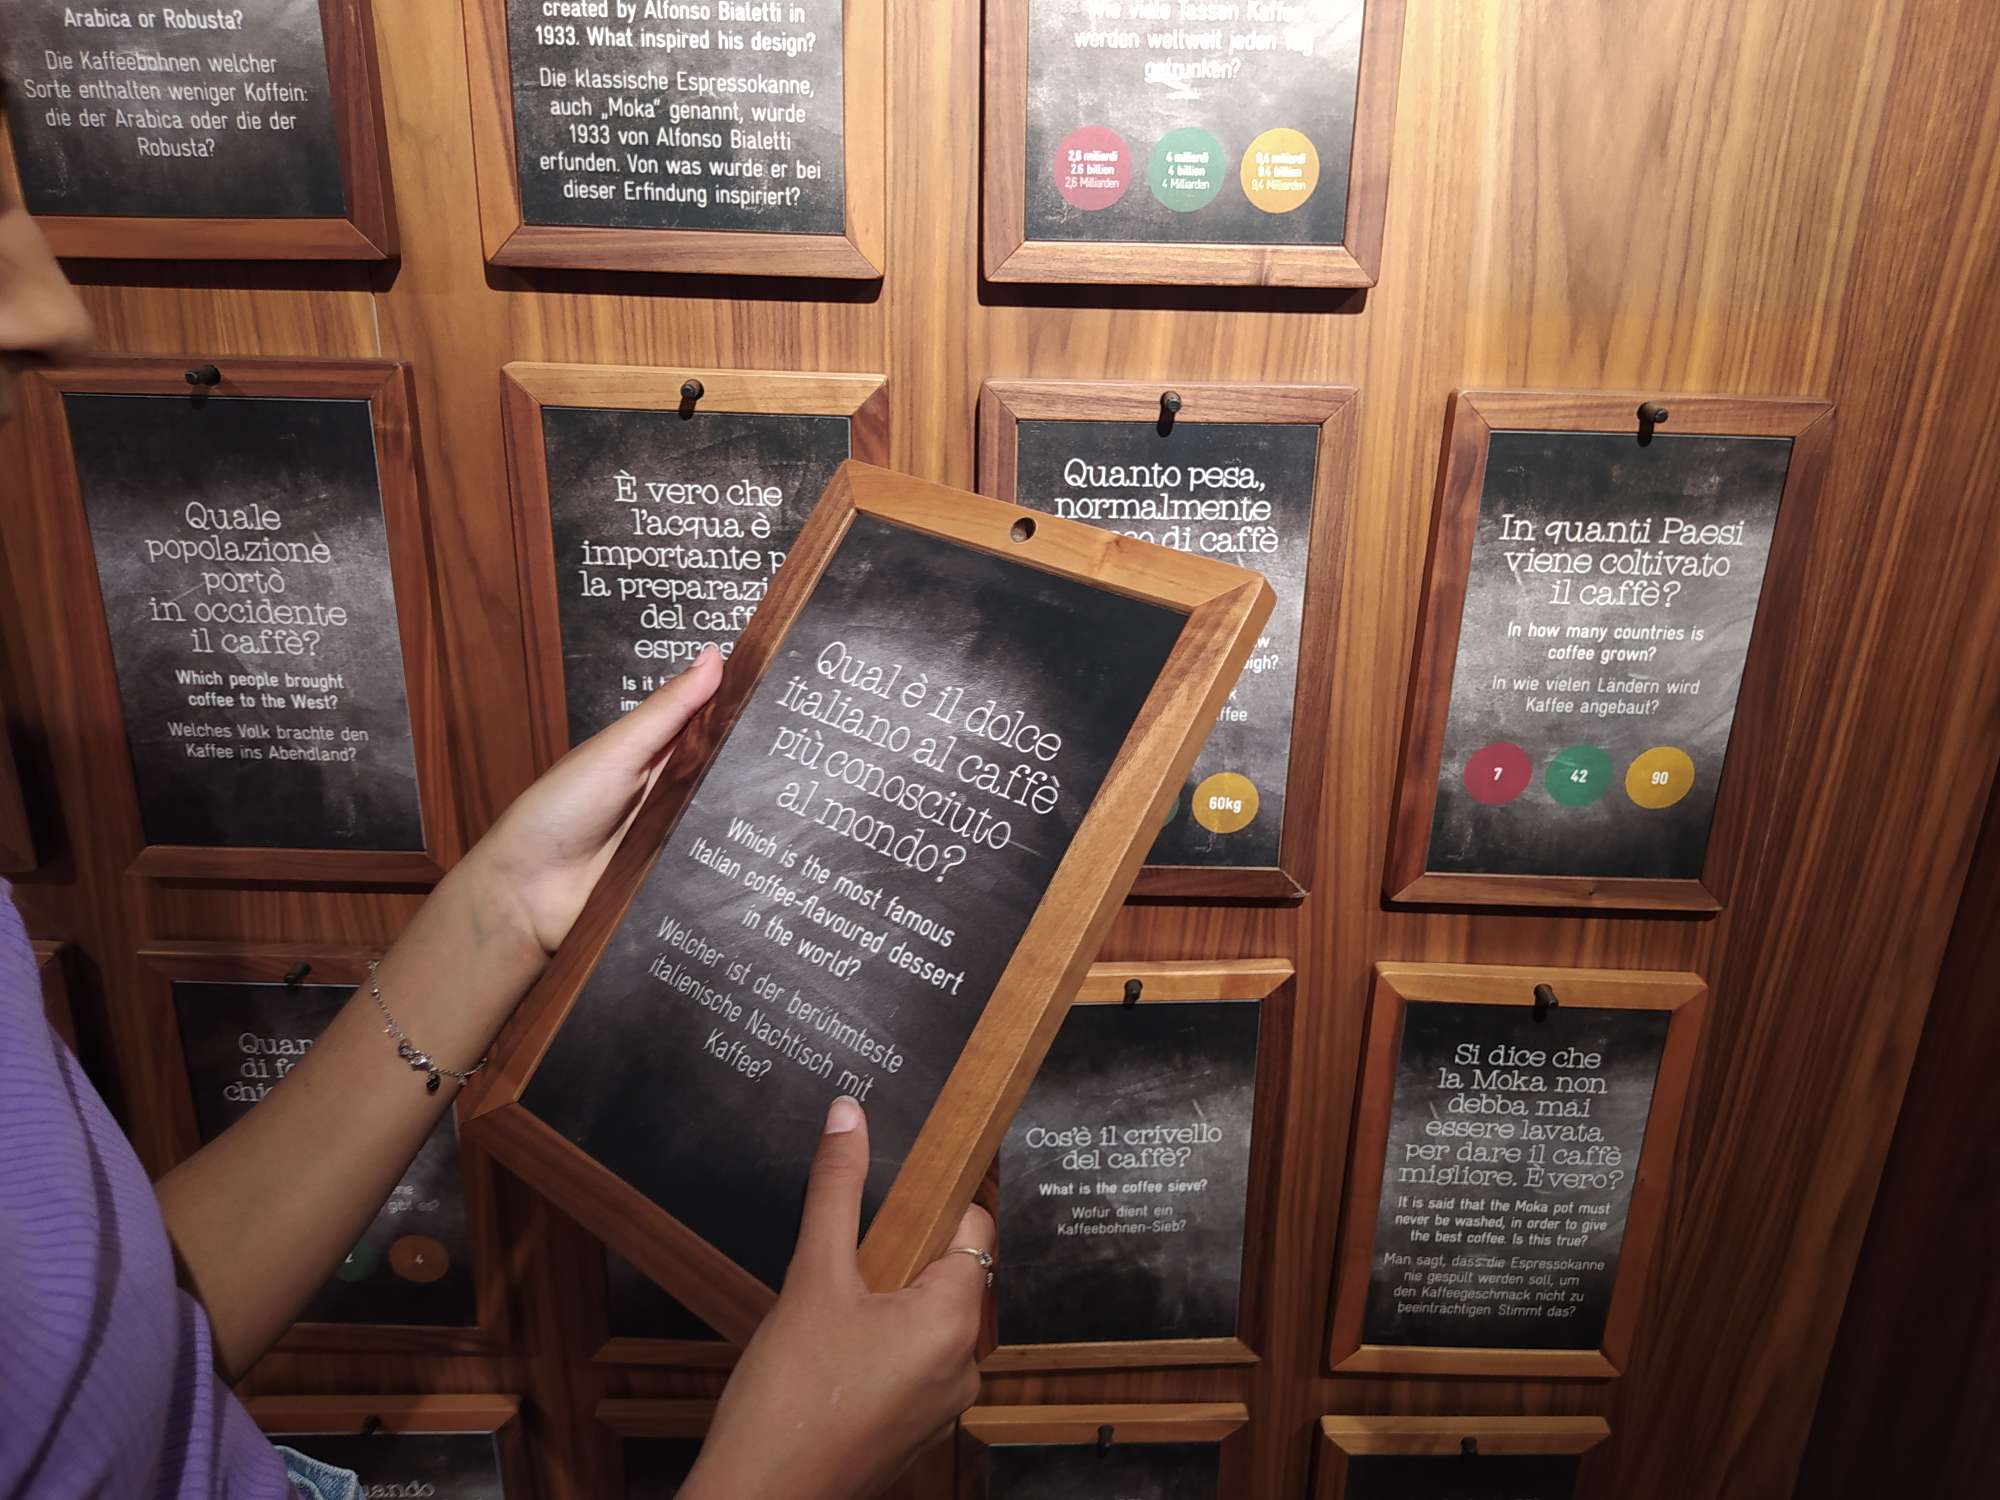 Arabica or Robusta?
Die Kaffeebohnen welcher
Sorte enthalten weniger Koffein:
die der Arabica oder die der
Robusta?
created by Alfonso Bialetti in
1933. What inspired his design?
Die klassische Espressokanne,
auch „Moka“ genannt, wurde
1933 von Alfonso Bialetti
erfunden. Von was wurde er bei
dieser Erfindung inspiriert?
Wie viele Tassen Kaffee
werden weltweit jeden Tag
getrunken?
2,6 miliardi
2.6 billion
2,6 Milliarden
4 miliardi
4 billion
4 Milliarden
9,4 miliardi
9.4 billion
9,4 Milliarden
Quale
popolazione
portò
in occidente
il caffè?
Which people brought
coffee to the West?
Welches Volk brachte den
Kaffee ins Abendland?
È vero che
l'acqua è
importante
la
del
Is it
Quanto pesa,
normalmente
di caffè
60kg
In quanti Paesi
viene coltivato
il caffè?
In how many countries is
coffee grown?
In wie vielen Ländern wird
Kaffee angebaut?
7
42
90
Qual è il dolce
italiano al caffè
più conosciuto
al mondo?
Which is the most famous
Italian coffee-flavoured dessert
in the world?
Welcher ist der berühmteste
italienische Nachtisch mit
Kaffee?
di
gibt es?
2
4
Cos'è il crivello
del caffè?
What is the coffee sieve?
Wofür dient ein
Kaffeebohnen-Sieb?
Si dice che
la Moka non
debba mai
essere lavata
per dare il caffè
migliore. È vero?
It is said that the Moka pot must
never be washed, in order to give
the best coffee. Is this true?
Man sagt, dass die Espressokanne
nie gespült werden soll, um
den Kaffeegeschmack nicht zu
beeinträchtigen. Stimmt das?